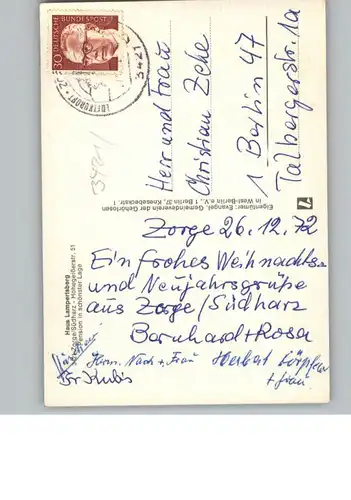 30 DEUTSCHE BUNDESPOST
LUFTKURORT
3421
3421
Herr und Frau
Christian Zeke
1 Berlin 47
Talbergerstr. 1a
Eigentümer: Evangel. Gemeindeverein der Gehörlosen
in West-Berlin e.V., 1 Berlin 37, Knesebeckstr. 1
7
Haus Lampertsberg
Zorge/Südharz - Hohegeißerstr. 51
Pension in schönster Lage
Zorge 26.12.72
Ein frohes Weihnachts
und Neujahrsgrüße
aus Zorge/Südharz
Bernhard + Rosa
Herm. + Frau Herbert
+ Frau